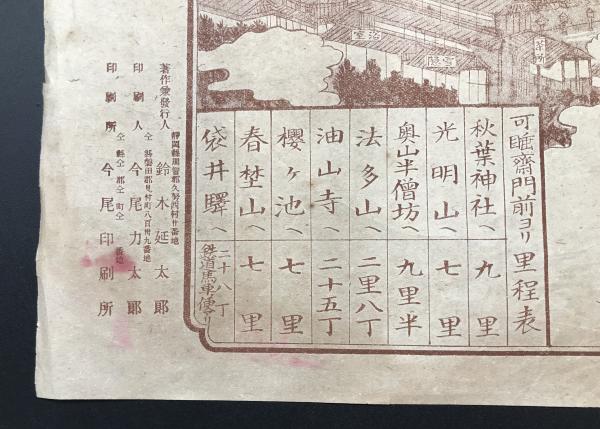 茶所
浴室
可睡齋門前ヨリ里程表
秋葉神社へ 九里
光明山へ 七里
奥山半僧坊へ 九里半
法多山へ 二里八丁
油山寺へ 二十五丁
櫻ヶ池へ 七里
春埜山へ 七里
袋井驛へ 二十八丁 鉄道馬車便アリ
靜岡縣周智郡久努西村廿番地
著作兼發行人 鈴木延太郎
仝 縣磐田郡見付町八百卅九番地
印刷人 今尾力太郎
仝縣仝郡仝町仝番地
印刷所 今尾印刷所